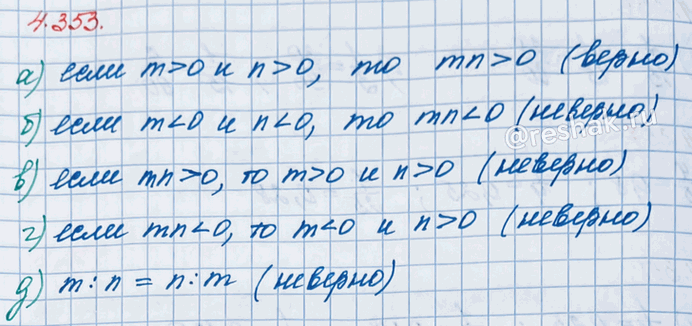 4.353.
а) если m>0 и n>0, то mn>0 (верно)
б) если m<0 и n<0, то mn<0 (неверно)
@reshak.ru
в) если mn>0, то m>0 и n>0 (неверно)
г) если mn<0, то m<0 и n>0 (неверно)
д) m:n = n:m (неверно)